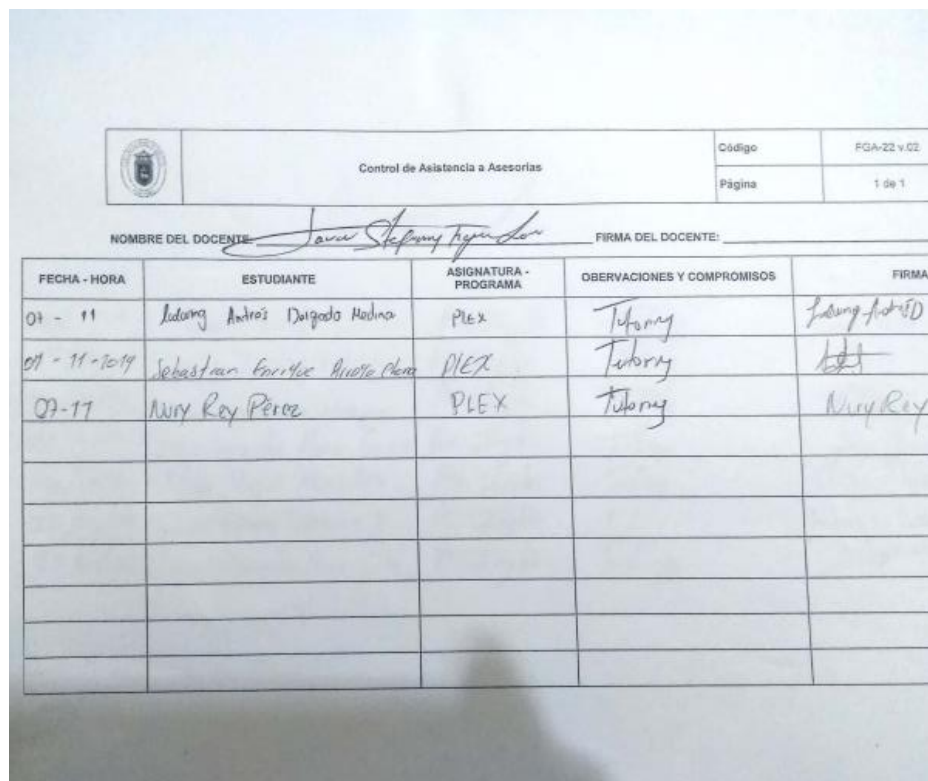 Control de Asistencia a Asesorías
Código FGA-22 v.02
Página 1 de 1
NOMBRE DEL DOCENTE: Stefanny FIRMA DEL DOCENTE:
FECHA - HORA ESTUDIANTE ASIGNATURA - PROGRAMA OBERVACIONES Y COMPROMISOS FIRMA
07 - 11 Andrés Delgado Medina PLEX Tutoring
07 - 11 - 2019 Sebastian Enrique Arroyo PLEX Tutoring
07-11 Nury Rey Pérez PLEX Tutoring Nury Rey